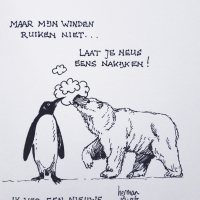 MAAR MIJN WINDEN
RUIKEN NIET...
LAAT JE NEUS
EENS NAKIJKEN!
herman
IK HEB EEN NIEUWE